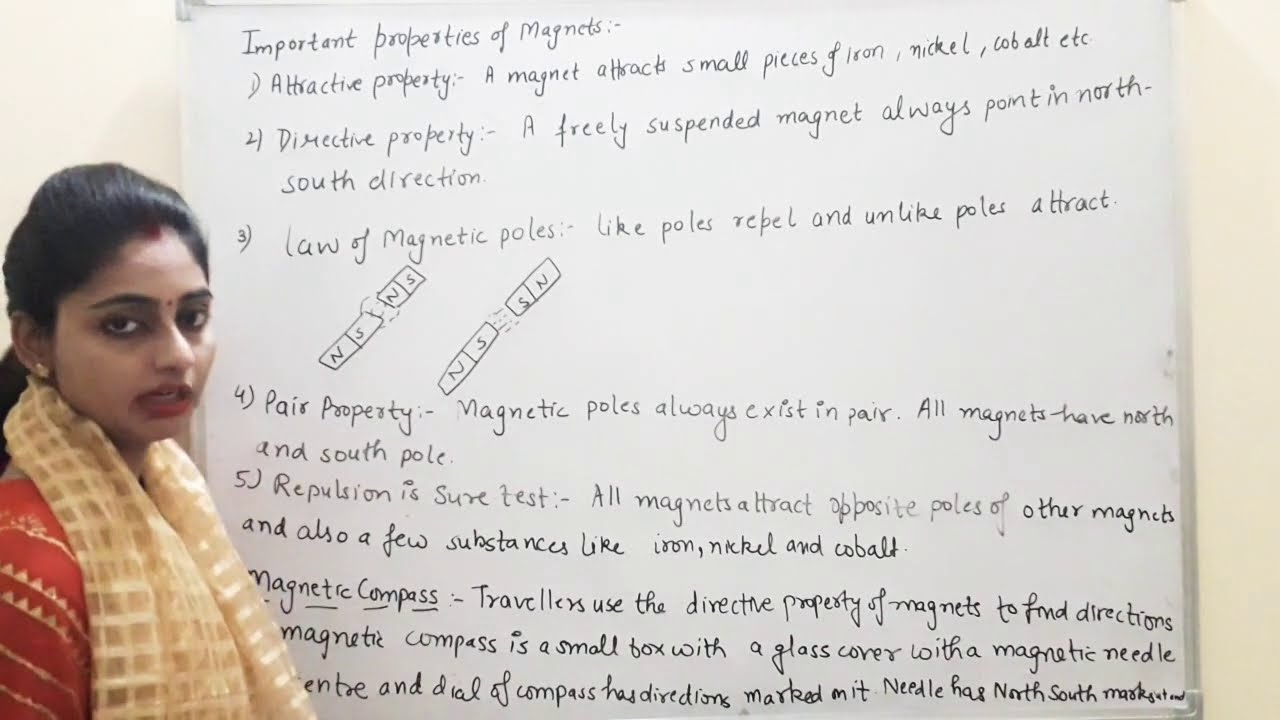 Important properties of Magnets:-
1) Attractive property:- A magnet attracts small pieces of iron, nickel, cobalt etc.
2) Directive property:- A freely suspended magnet always point in north-
south direction.
3) law of Magnetic poles:- like poles repel and unlike poles attract.
N S N S
N S S N
4) Pair Property:- Magnetic poles always exist in pair. All magnets have north
and south pole.
5) Repulsion is Sure test:- All magnets attract opposite poles of other magnets
and also a few substances like iron, nickel and cobalt.
Magnetic Compass:- Travellers use the directive property of magnets to find directions
magnetic compass is a small box with a glass cover with a magnetic needle
entre and dial of compass has directions marked on it. Needle has North South marks